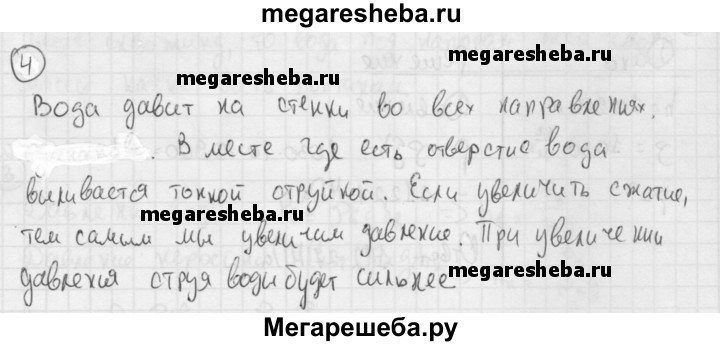 megaresheba.ru
4
megaresheba.ru
Вода давит на стенки во всех направлениях.
megaresheba.ru
. В месте где есть отверстие вода
выливается тонкой струйкой. Если увеличить сжатие,
megaresheba.ru
megaresheba.ru
тем самым мы увеличим давление. При увеличении
давления струя воды будет сильнее
megaresheba.ru
Мегарешеба.ру